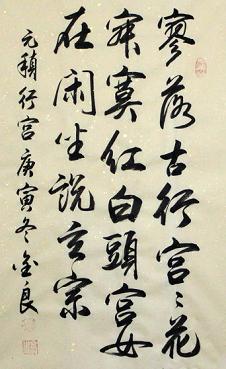 寥落古行宫〻花
寂寞红白頭宫女
在闲坐説玄宗
元稹行宫庚寅冬金良